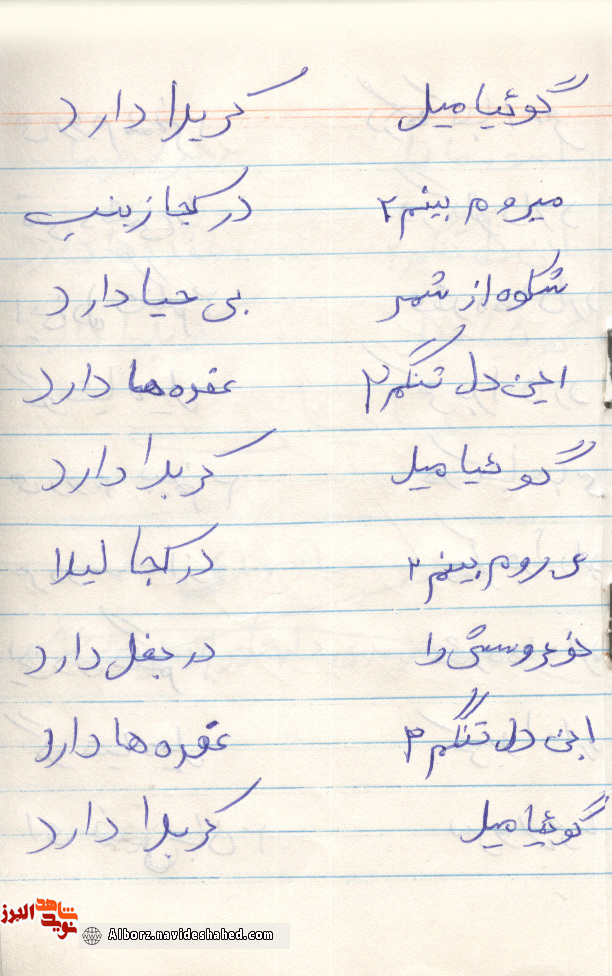 گوئیا میل کربلا دارد
میروم بینم ۲ در کجا زینب
شکوه از شمر بی حیا دارد
این دل تنگم ۲ عقده ها دارد
گوئیا میل کربلا دارد
می روم بینم ۲ در کجا لیلا
نوعروسش را در بغل دارد
این دل تنگم ۳ عقده ها دارد
گوئیا میل کربلا دارد
نوید شاهد البرز
Alborz.navideshahed.com